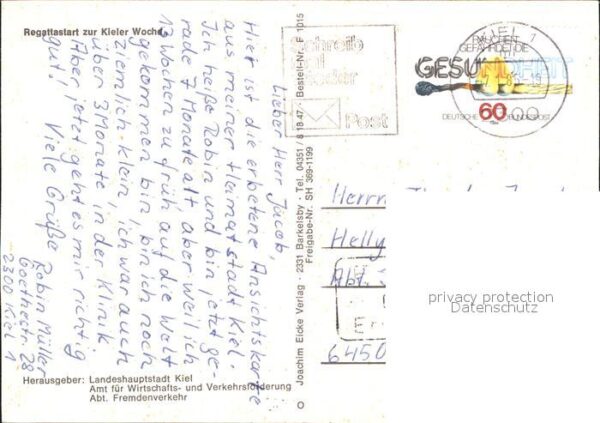 Regattastart zur Kieler Woche
Lieber Herr Jacob,
Hier ist die erbetene Ansichtskarte
aus meiner Heimatstadt Kiel.
Ich heiße Robin und bin jetzt ge-
rade 7 Monate alt aber weil ich
13 Wochen zu früh auf die Welt
gekommen bin, bin ich noch
ziemlich klein, ich war auch
über 3 Monate in der Klinik
Aber jetzt geht es mir richtig
gut! Viele Grüße
Robin Müller
Goethestr. 28
2300 Kiel 1
Herausgeber: Landeshauptstadt Kiel
Amt für Wirtschafts- und Verkehrsförderung
Abt. Fremdenverkehr
Joachim Eicke Verlag · 2331 Barkelsby · Tel. 04351 / 8 18 47 · Bestell-Nr. F 1015
Freigabe-Nr. SH 369-1199
Schreib
mal
wieder
Post
KIEL 1
RAUCHEN
GEFÄHRDET DIE
GESUNDHEIT
60
DEUTSCHE BUNDESPOST
Herrn
Helly
Abt.
6450
privacy protection
Datenschutz